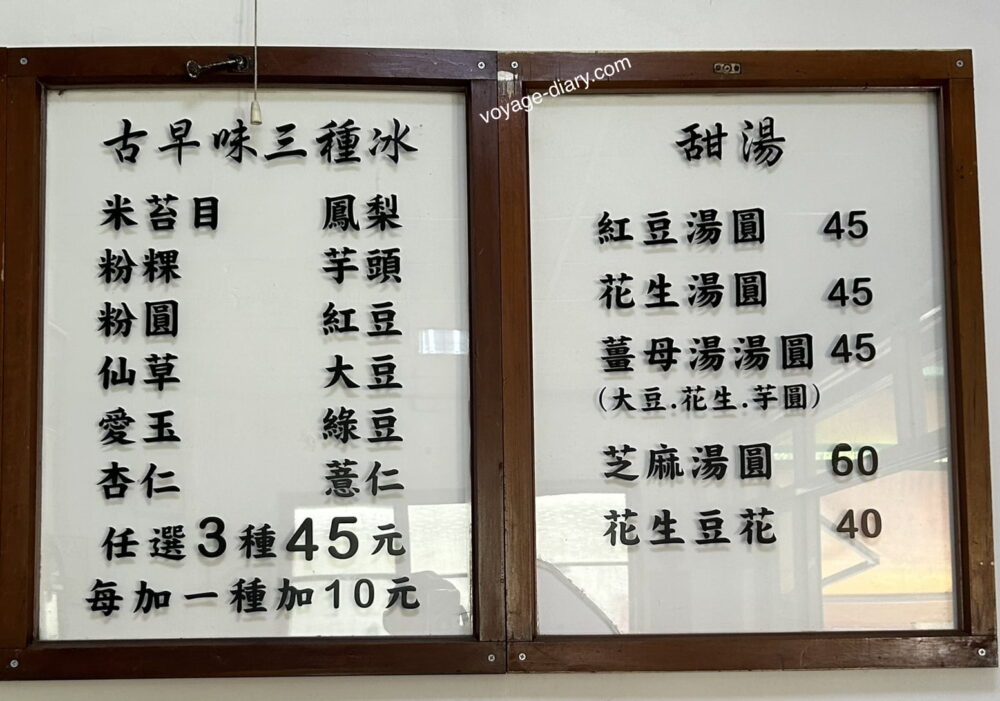 voyage-diary.com
古早味三種冰
米苔目 鳳梨
粉粿 芋頭
粉圓 紅豆
仙草 大豆
愛玉 綠豆
杏仁 薏仁
任選3種45元
每加一種加10元
甜湯
紅豆湯圓 45
花生湯圓 45
薑母湯湯圓 45
(大豆.花生.芋圓)
芝麻湯圓 60
花生豆花 40